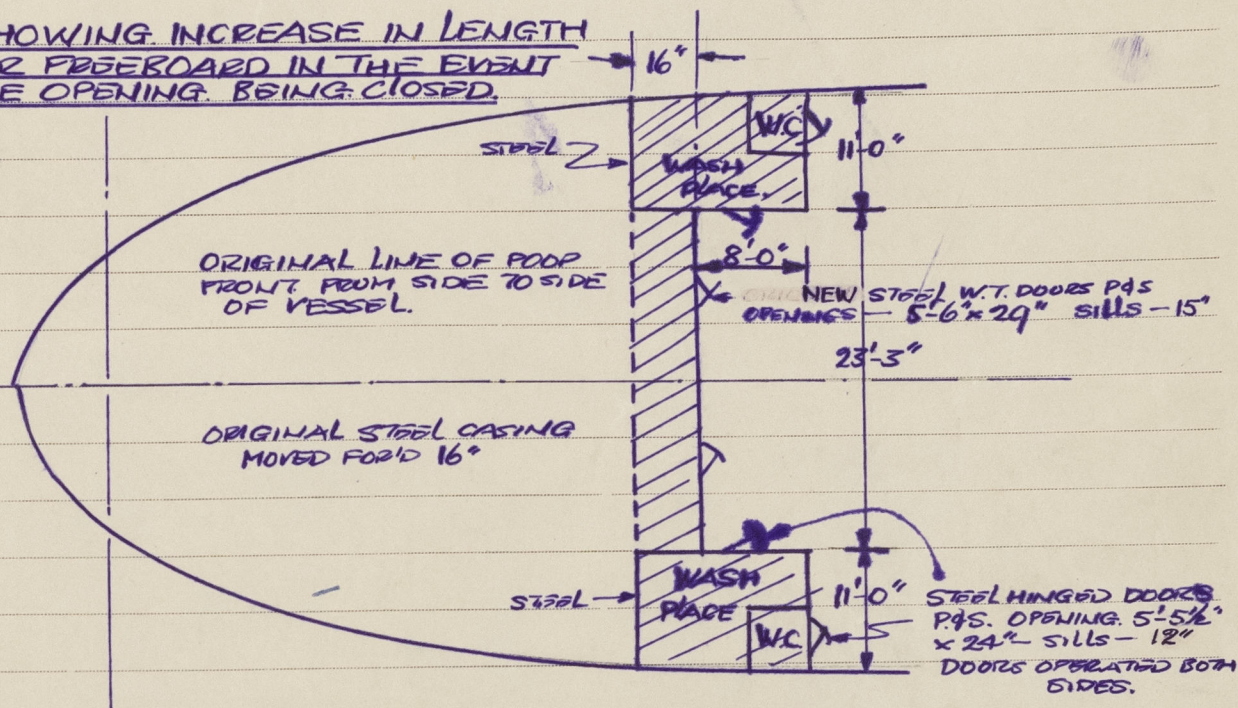 HOWING INCREASE IN LENGTH
R FREEBOARD IN THE EVENT
E OPENING BEING CLOSED.
16"
STEEL
W.C
WASH
PLACE.
11'-0"
8'-0"
ORIGINAL LINE OF POOP
FRONT FROM SIDE TO SIDE
OF VESSEL.
NEW STEEL W.T. DOORS P&S
OPENINGS — 5'-6" x 29" SILLS — 15"
23'-3"
ORIGINAL STEEL CASING
MOVED FOR'D 16"
STEEL
WASH
PLACE
W.C
11'-0"
STEEL HINGED DOORS
P.&S. OPENING. 5'-5½"
x 24" — SILLS — 12"
DOORS OPERATED BOTH
SIDES.